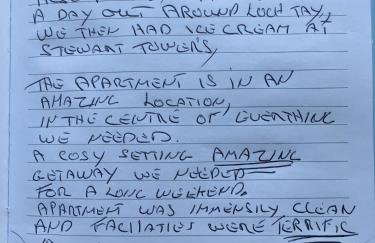 A DAY OUT AROUND LOCH TAY,
WE THEN HAD ICE CREAM AT
STEWART TOWER'S,
THE APARTMENT IS IN AN
AMAZING LOCATION,
IN THE CENTRE OF EVERTHING
WE NEEDED.
A COSY SETTING AMAZING
GETAWAY WE NEEDED
FOR A LONG WEEKEND.
APARTMENT WAS IMMENSILY CLEAN
AND FACILATIES WERE TERRIFIC